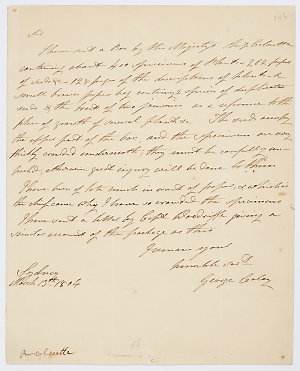 Sir
I have sent a Box by His Majesty's Ship Calcutta
containing about 400 specimens of Plants - 202 papers
of seeds - 128 pages of the descriptions of plants - a
small brown paper bag containg 2 species of duplicate
seeds & the root of two
place of growth of several plants &c. The seeds occupy
the upper part of the box and the specimens are very
thickly crowded underneath; they must be carefully un-
packed otherwise great injury will be done to them
I have been of late much in want of paper, & which is
the chief cause why I have so crowded the specimens
I have sent a letter by Capt Woodriff giving a
similar account of the package as this
I remain your
humble Sert.
George Caley
Sydney
March 13th 1804